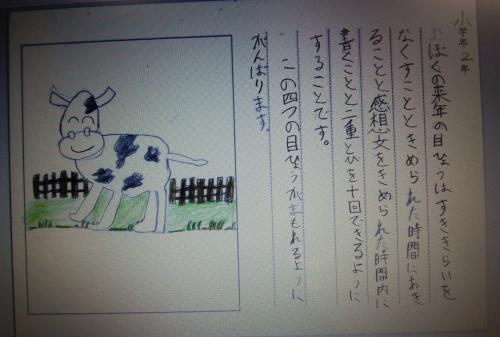 小学年2年
ぼくの来年の目ひょうはすききらいを
なくすことと きめられた時間におき
ることと感想文をきめられた時間内に
書くことと二重とびを十回できるように
することです。
この四つの目ひょうがまもれるように
がんばります。